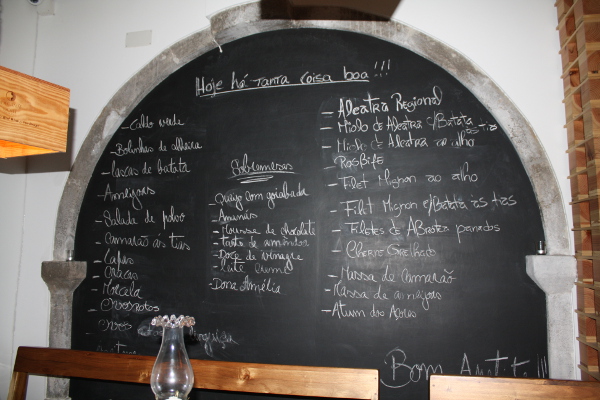 Hoje há tanta coisa boa!!!
- Caldo verde
- Bolinhas de alheira
- Lascas de batata
- Ameijoas
- Salada de polvo
- Camarão às tiras
- Lapas
- Cracas
- Morcela
Sobremesas
- Queijo com goiabada
- Ananás
- Mousse de chocolate
- tarte de amêndoa
- Doce de vinagre
- Dona Amélia
- Alcatra Regional
- Miolo de Alcatra c/ Batata às tiras
- Miolo de Alcatra ao alho
- Rosbife
- Filet Mignon ao alho
- Filet Mignon c/ Batata às tiras
- Filetes de Abrótea panados
- Cherne Grelhado
- Massa de Camarão
- Massa de ameijoas
- Atum dos Açores
Bom